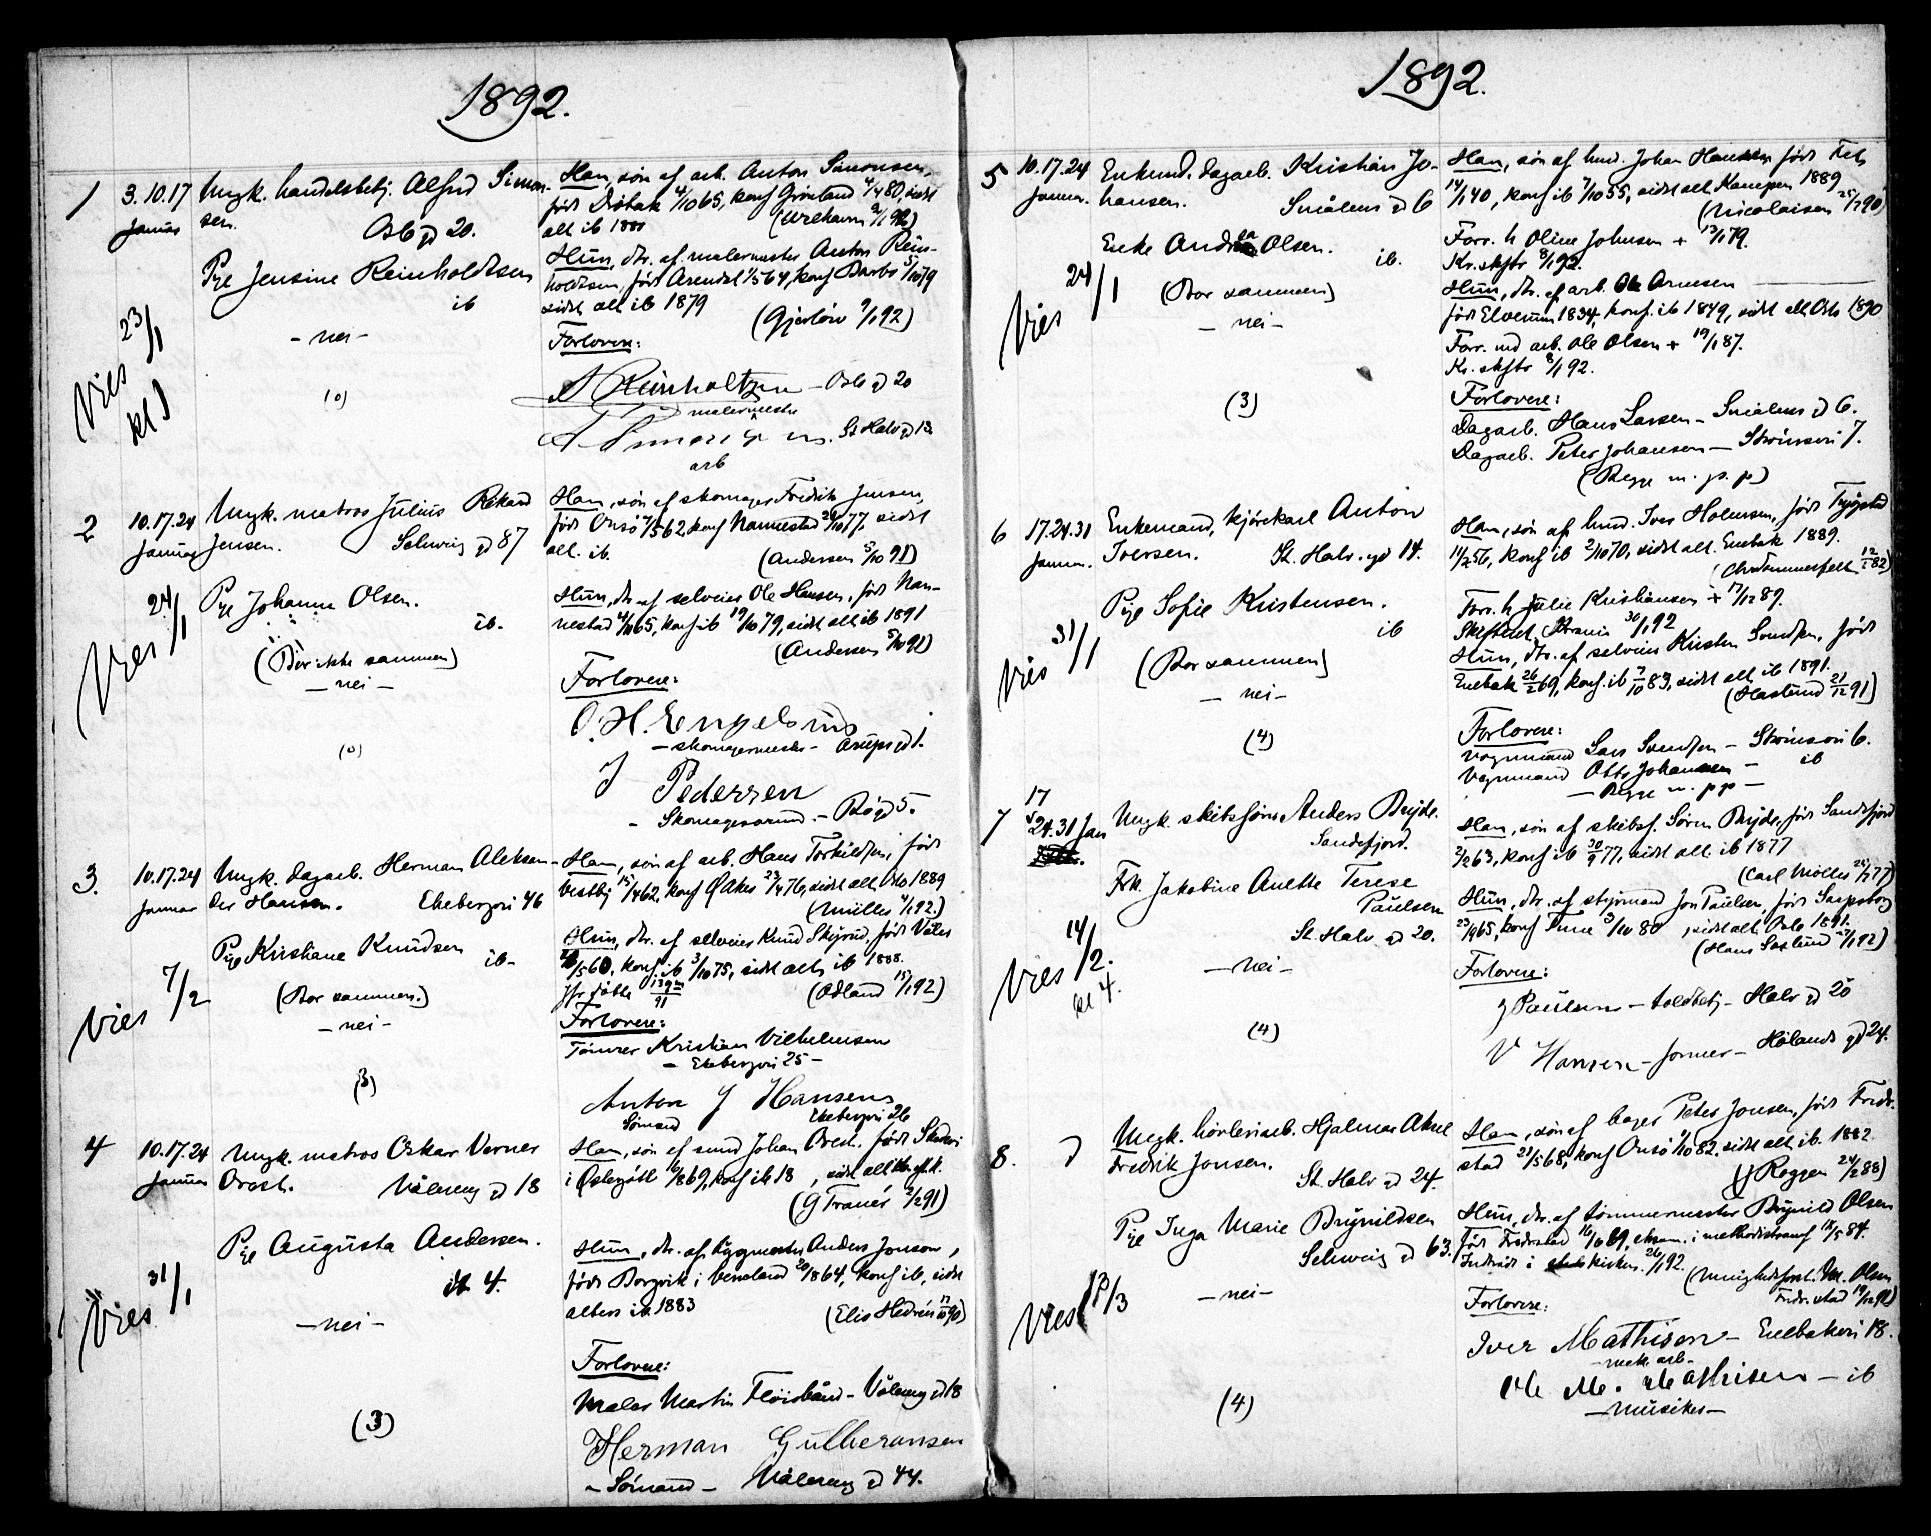 1892.
1 3.10.17 Januar
Ungk. handelsbetj. Alfred Simonsen.
Oslo gd 20.
Pige Jensine Reinholdtsen
ib
- nei -
(0)
Vies 23/1 kl
Han, søn af arb. Anton Simonsen,
født Drøbak 4/10 65, konf Grønland 4/4 80, sidst
alt ib 188
Hun, dtr. af malermester Anton Rein-
holdtsen, født Arendal 1/5 64, konf 5/10 79
sidst alt ib 1879
(Gjerløw 9/1 92)
Forlovere:
A Reinholtzen - Oslo gd 20
malermester
A Simonsen. St Halv gd 13.
arb
2 10.17.24 Januar
Ungk. matros Julius Rikard
Jensen. Schweig gd 87
Pige Johanne Olsen.
ib.
(Bor ikke sammen)
- nei -
(0)
Vies 24/1
Han, søn af skomager Fredrik Jensen,
født Onsø 7/5 62, konf Nannestad 77. sidst
alt. ib.
(Andersen 5/10 91)
Hun, dtr. af selveier Ole Hansen, født Nan-
nestad 65, konf ib 19/10 79, sidst alt ib 1891
(Andersen 5/10 91)
Forlovere:
O. H. Engelsrud
- skomagermester - Arups gd 1.
J Pedersen
- Skomagersvend. - Bøgd 5.
3. 10.17.24 Januar
Ungk. dagarb. Herman Aleksan-
der Hansen. Ekebergvei 46
Pige Kristiane Knudsen
ib-
(Bor sammen.)
- nei -
(3)
Vies 7/2
Han, søn af arb. Hans Torkildsen, født
Vestby 15/4 62, konf Oslo 23/4 76, sidst alt Oslo 1889
(Müller 4/1 92.)
Hun, dtr. af selveier Knud Skjerud, født Våler
/5 60, konf ib 3/10 75, sidst alt. ib 1888.
(Ødland 15/1 92)
Forlovere:
Tømrer Kristian Vilhelmsen
- Ekebergvei 25 -
Anton J Hansen
Sømand Ekebergvei 26
4 10.17.24 Januar
Ungk. matros Oskar Verner
Orest. Vålereng gd 18
Pige Augusta Andersen.
ib 4.
- nei -
(3)
Vies 31/1
Han, søn af smed Johan Orest. født
i Østergøtl /8 69, konf ib 18 , sidst alt
(G Tranér 2/2 91)
Hun, dtr. af Bygmester Anders Jonson,
født Borgvik i Vermland 20/8 64, konf ib, sidst
alters ib 1883
(Elis Hedrén 17/10 90)
Forlovere:
Maler Martin Fløisbånd - Vålereng gd 18
Herman Gulbransen
- Sømand - Vålereng gd 44.
1892.
5 10.17.24 Januar.
Enkemd. dagarb. Kristian Jo-
hansen. Smålens gd 6
Enke Andrea Olsen. ib.
(Bor sammen)
- nei -
(3)
Vies 24/1
Han, søn af husmd. Johan Hansen født Fet
14/1 40, konf ib 7/10 55, sidst alt Kampen 1889
(Nicolaisen 25/7 90)
Forr. h Oline Johnsen + 12/1 79.
Kr. skftr 8/1 92.
Hun, dtr. af arb. Ole Arnesen
født Elverum 1834, konf. ib 1849, sidst alt Oslo 1890
Forr. md arb. Ole Olsen + 19/1 87.
Kr. skftr 8/1 92.
Forlovere:
Dagarb. Hans Larsen - Smålens gd 6.
Dagarb. Peter Johansen - Strømsvei 7.
(Begge m. p. p)
6 17.24.31 Januar.
Enkemand, kjørekarl Anton
Iversen. St. Halv. gd 14.
Pige Sofie Kristensen.
ib
(Bor sammen)
- nei -
(4)
Vies 31/1
Han, søn af husmd. Iver Halvorsen, født Trygstad
14/2 56, konf ib 2/10 70, sidst alt. Enebak 1889.
(Chr Tommerfelt 12/1 82)
Forr. h Julie Kristiansen + 17/12 89.
30/1 92
Hun, dtr. af selveier Kristen Svendsen, født
Enebak 26/2 69, konf. ib 7/10 83, sidst alt ib 1891.
(Haslund 21/12 91)
Forlovere:
Vognmand Lars Svendsen - Strømsvei 6.
Vognmand Otto Johansen - ib
- Begge m. p p -
7 17 24.31 Jan
Ungk. skibsfører Anders Bryde.
Sandefjord.
Frk. Jakobine Anette Terese
Paulsen
St. Halv. gd 20.
- nei -
(4)
Vies 14/2. kl 4.
Han, søn af skibsf. Søren Bryde, født Sandefjord
2/2 63, konf ib 30/9 77, sidst alt ib 1877
(Carl Möller 25/1 77)
Hun, dtr. af styrmand Jon Paulsen, født Sarpsborg
23/1 65, konf Tune 3/10 80, sidst alt Oslo 1891.
(Hans Saxlund /1 92)
Forlovere:
J Paulsen - toldbetj - Halv gd 20
V Hansen - former - Hølands gd 24.
8. d
Ungk. høvleriarb. Hjalmar Aksel
Fredrik Jonsen.
St. Halv gd 24.
Pige Inga Marie Brynildsen
Schweig gd 63.
- nei -
(4)
Vies 13/3
Han, søn af bager Peter Jonsen, født Fredr.
stad 21/5 68, konf Onsø 1/10 82, sidst alt. ib. 1882
(J Roggen 24/2 88)
Hun, dtr. af tømmermester Brynild Olsen
født Fredrikstad 16/10 69, eksam. i methodistsamf 18/5 84.
Indtråd i kirken. 26/1 92.
(menighedsforst. M. Olsen
Fredr.stad 19/12 91)
Forlovere:
Iver Mathisen - Enebakvei 18.
- mek. arb -
Ole M. Mathisen - ib
- Musiker -